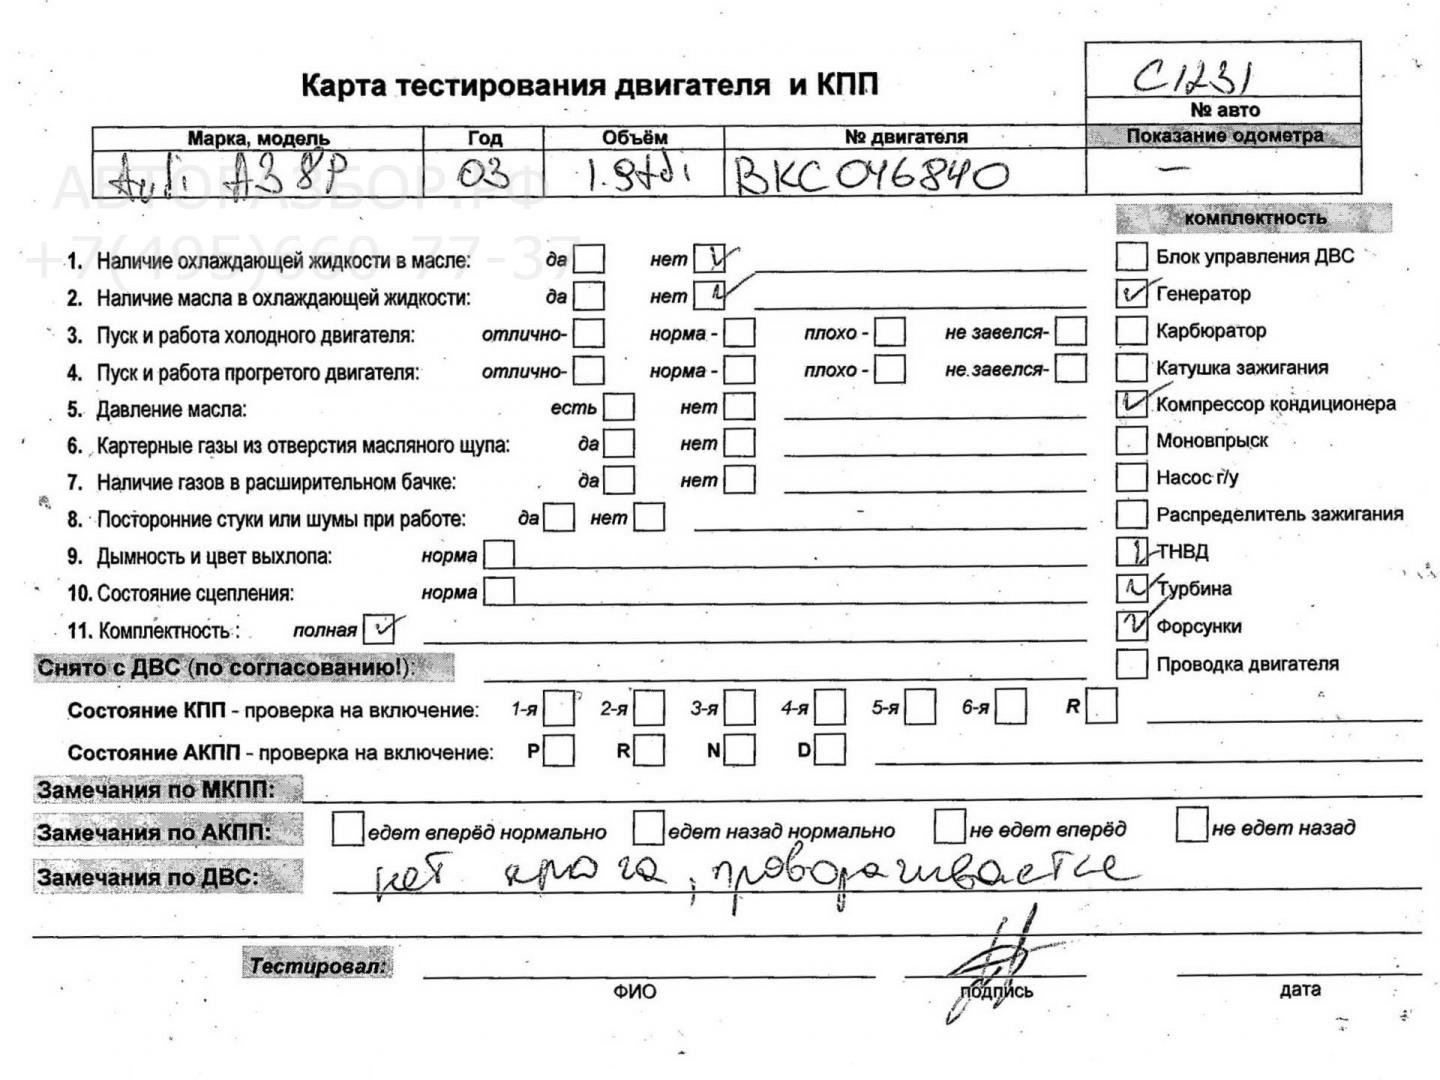 Карта тестирования двигателя и КПП
С1231
№ авто
Марка, модель Год Объём № двигателя Показание одометра
Audi A3 8P 03 1.9tdi BKC 046840 —
АВТОРАЗБОР.РФ
+7(495)660-77-37
комплектность
1. Наличие охлаждающей жидкости в масле: да нет Блок управления ДВС
2. Наличие масла в охлаждающей жидкости: да нет Генератор
3. Пуск и работа холодного двигателя: отлично- норма - плохо - не завелся- Карбюратор
4. Пуск и работа прогретого двигателя: отлично- норма - плохо - не завелся- Катушка зажигания
5. Давление масла: есть нет Компрессор кондиционера
6. Картерные газы из отверстия масляного щупа: да нет Моновпрыск
7. Наличие газов в расширительном бачке: да нет Насос г/у
8. Посторонние стуки или шумы при работе: да нет Распределитель зажигания
9. Дымность и цвет выхлопа: норма ТНВД
10. Состояние сцепления: норма Турбина
11. Комплектность : полная Форсунки
Снято с ДВС (по согласованию!): Проводка двигателя
Состояние КПП - проверка на включение: 1-я 2-я 3-я 4-я 5-я 6-я R
Состояние АКПП - проверка на включение: P R N D
Замечания по МКПП:
Замечания по АКПП: едет вперёд нормально едет назад нормально не едет вперёд не едет назад
Замечания по ДВС: нет , проворачивается
Тестировал:
ФИО подпись дата